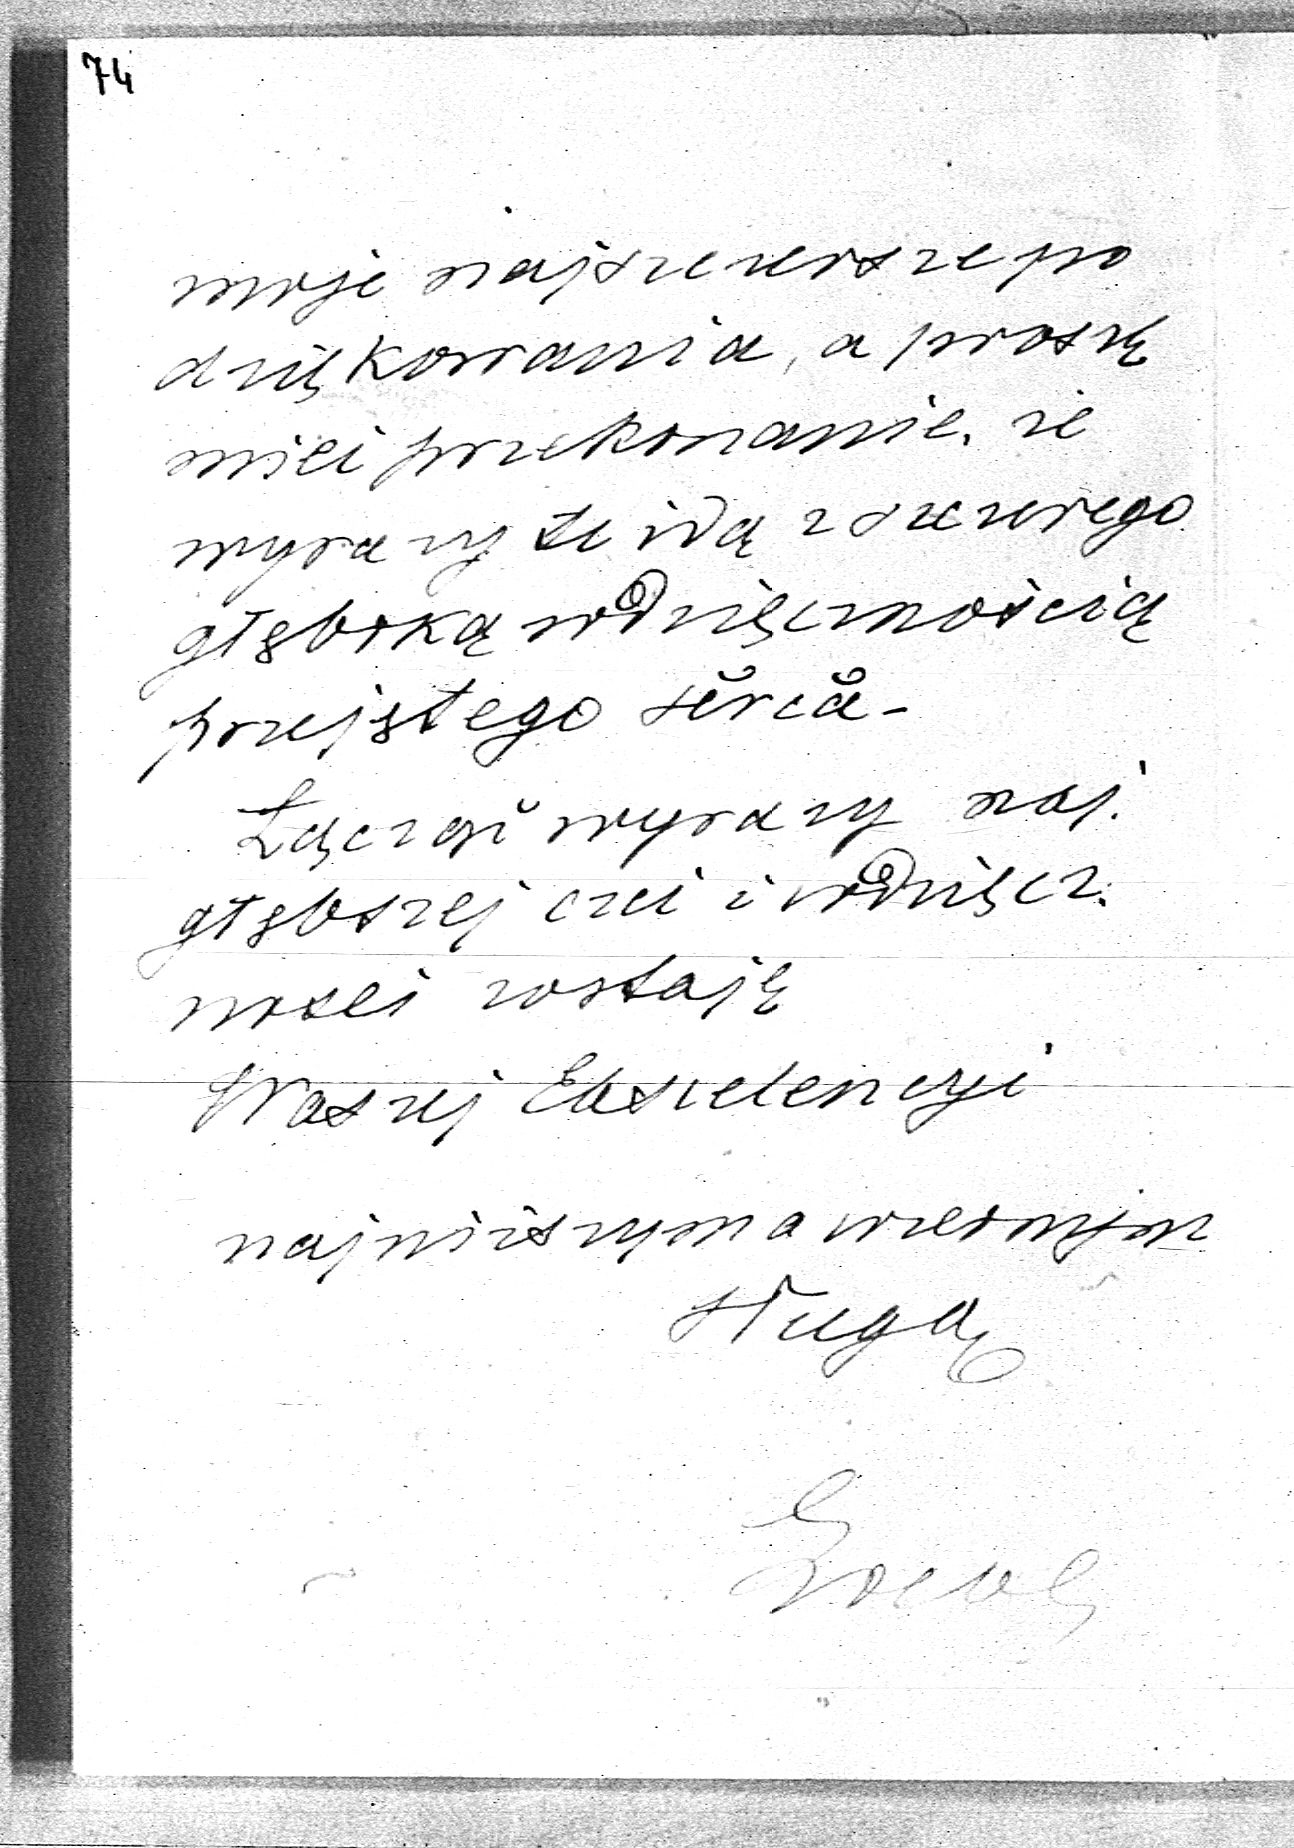 74
moje najszczersze po
dziękowania, a proszę
mieć przekonanie, że
wyrazy te idą z szczerego
głęboką wdzięcznością
przejętego serca -
Łącząc wyrazy naj.
głębszej czci i wdzięcz.
ności zostaję
Waszej Ekscelencyi
najniższym a wiernym
sługą